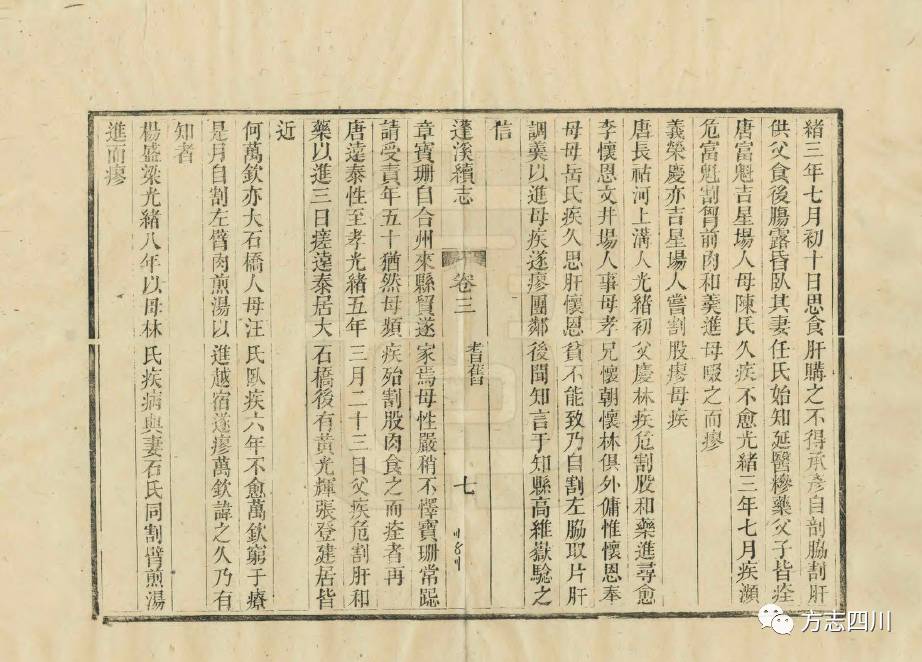 緒三年七月初十日思食肝購之不得承彥自剖脇割肝
供父食後腸露昏臥其妻任氏始知延醫糝藥父子皆痊
唐富魁吉星場人母陳氏久疾不愈光緒三年七月疾瀕
危富魁割臂前肉和羹進母啜之而瘳
義榮慶亦吉星場人嘗割股瘳母疾
唐長祜河上溝人光緒初父慶林疾危割股和藥進尋愈
李懷恩文井場人事母孝兄懷朝懷林俱外傭惟懷恩奉
母母岳氏疾久思肝懷恩貧不能致乃自割左脇取片肝
調羹以進母疾遂瘳團鄰後聞知言于知縣高維嶽驗之
信
蓬溪續志 卷三 耆舊 七
章寶珊自合州來縣貿遂家焉母性嚴稍不懌寶珊常跽
請受責年五十猶然母頻疾殆割股肉食之而痊者再
唐遠泰性至孝光緒五年三月二十三日父疾危割肝和
藥以進三日瘥遠泰居大石橋後有黃光輝張登建居皆
近
何萬欽亦大石橋人母汪氏臥疾六年不愈萬欽窮于療
是月自割左臂肉煎湯以進越宿遂瘳萬欽諱之久乃有
知者
楊盛梁光緒八年以母林氏疾病與妻石氏同割臂煎湯
進而瘳
方志四川